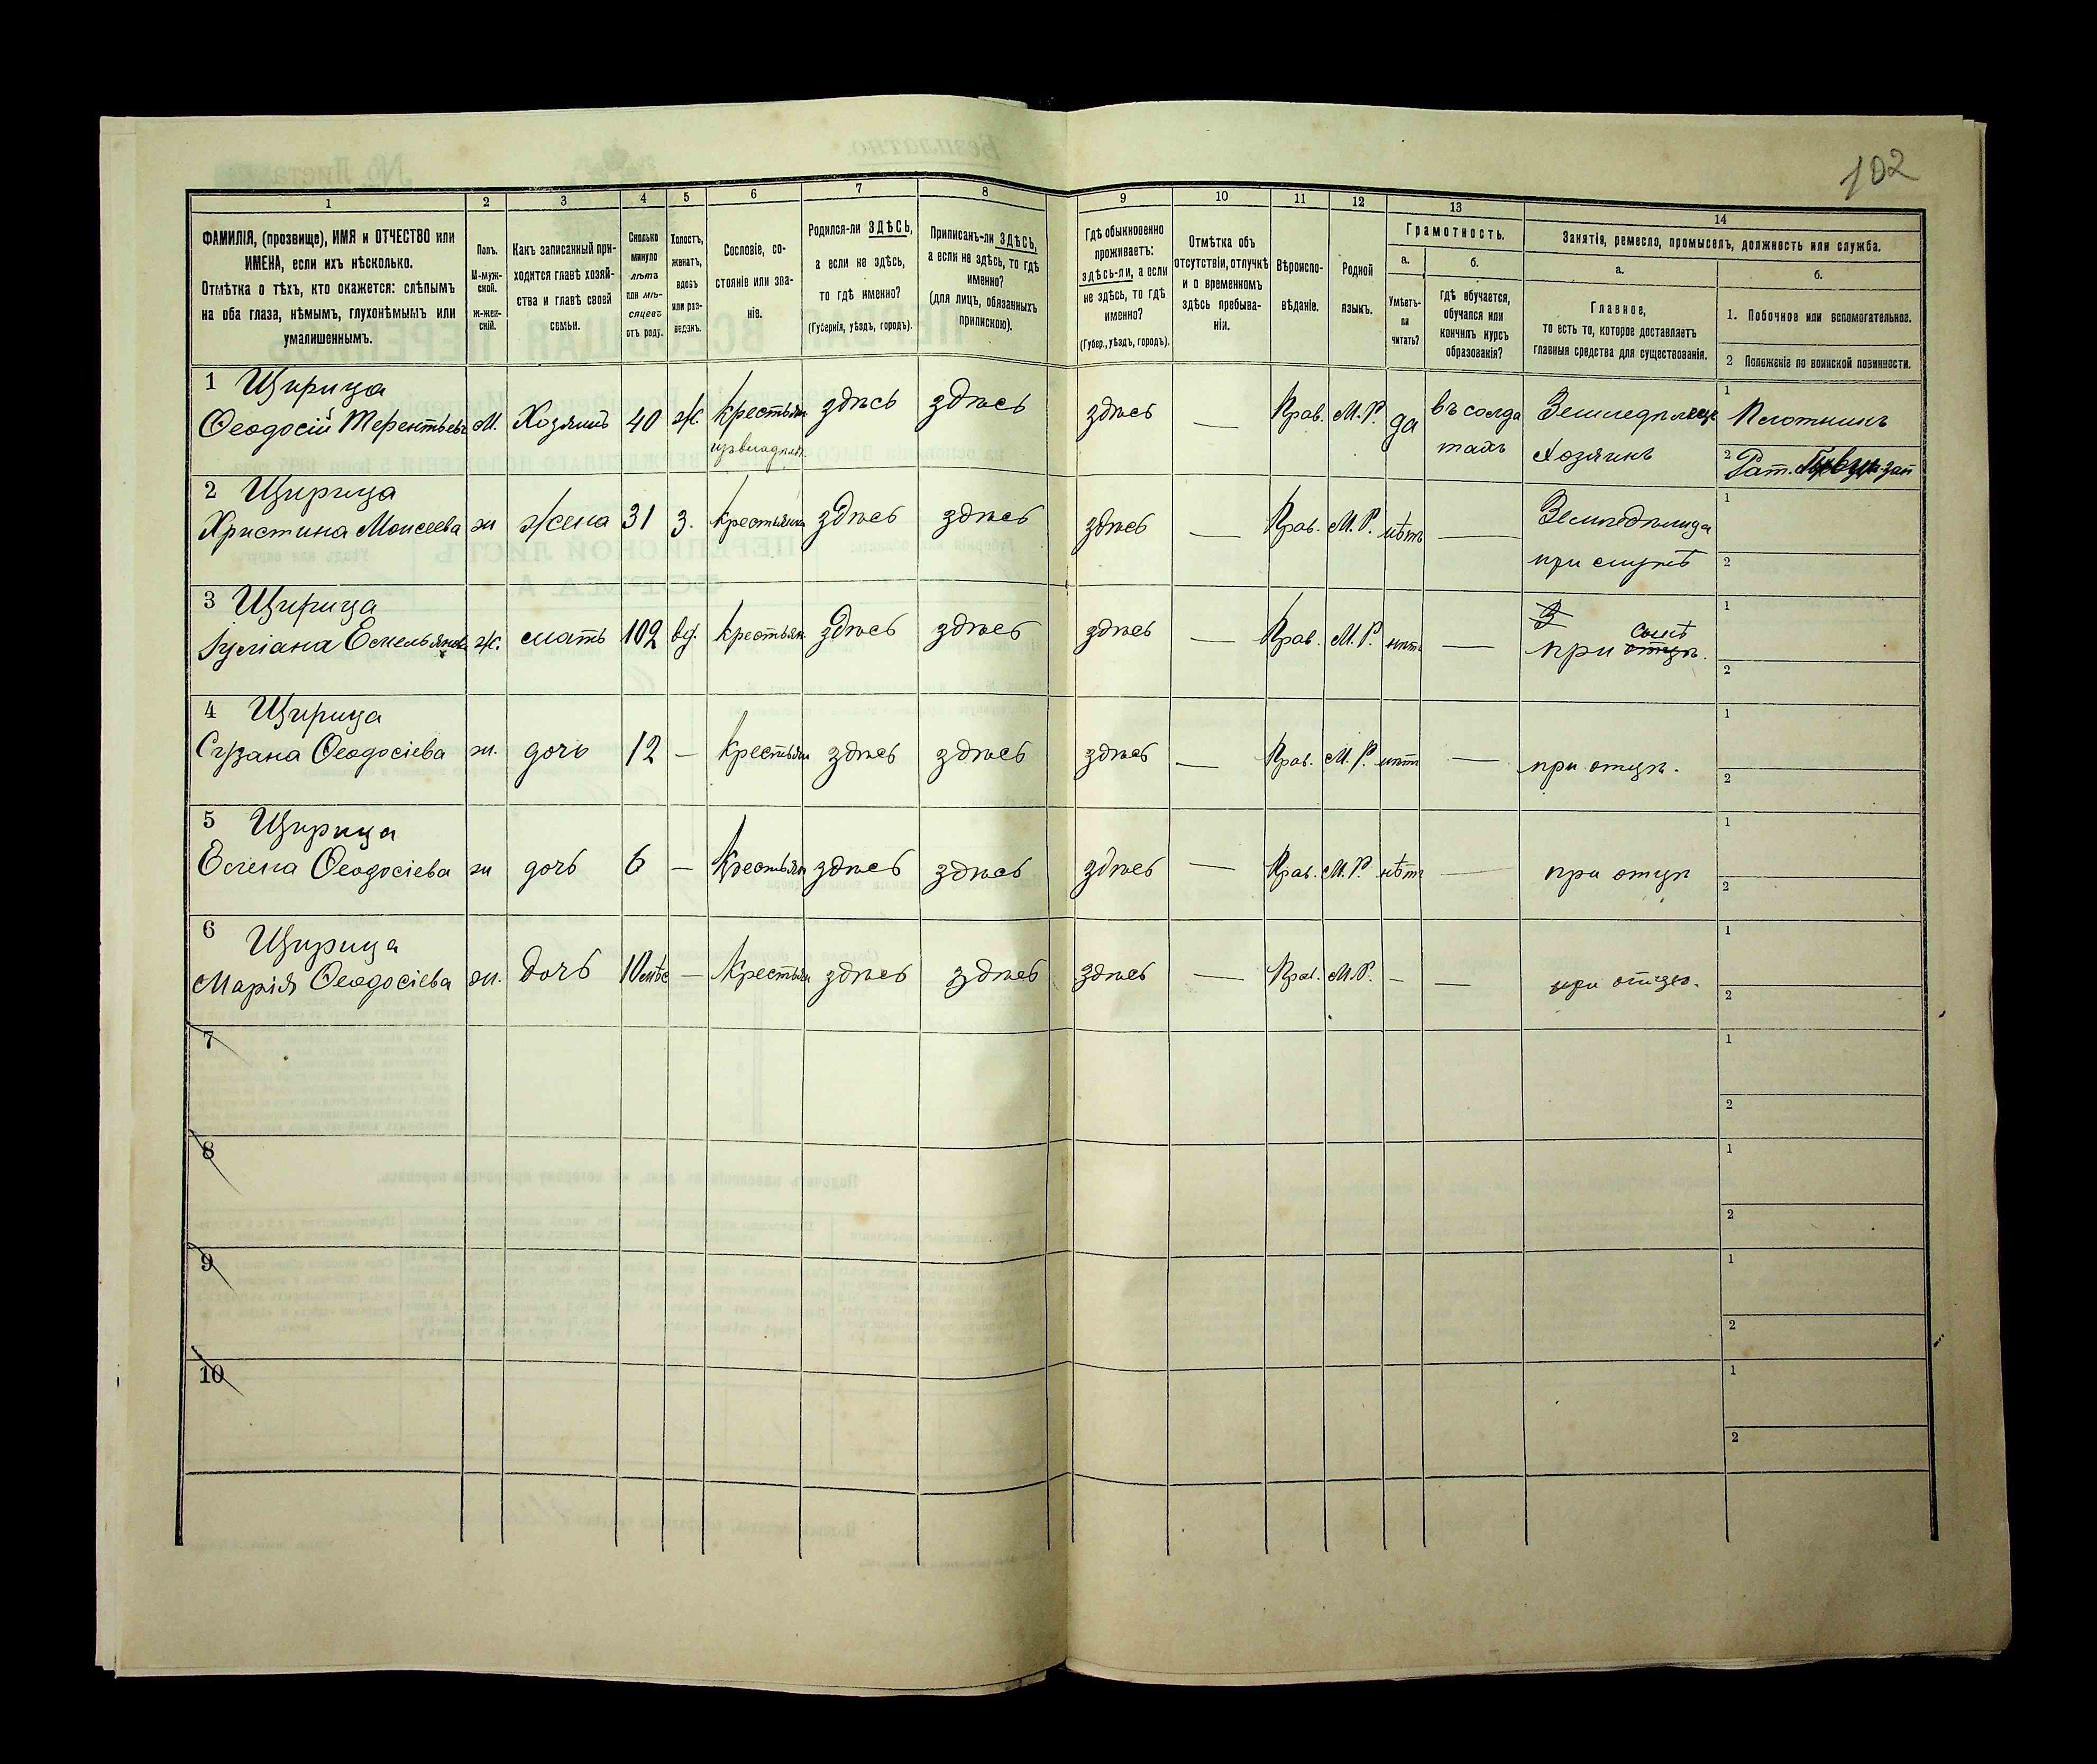 102
1 2 3 4 5 6 7 8 9 10 11 12 13 14
ФАМИЛІЯ, (прозвище), ИМЯ и ОТЧЕСТВО или
ИМЕНА, если ихъ нѣсколько.
Отмѣтка о тѣхъ, кто окажется: слѣпымъ
на оба глаза, нѣмымъ, глухонѣмымъ или
умалишеннымъ.
Полъ.
М-муж-
ской.
ж-жен-
скій.
Какъ записанный при-
ходится главѣ хозяй-
ства и главѣ своей
семьи.
Сколько
минуло
лѣтъ
или мѣ-
сяцевъ
отъ роду.
Холостъ,
женатъ,
вдовъ
или раз-
веденъ.
Сословіе, со-
стояніе или зва-
ніе.
Родился-ли ЗДѢСЬ,
а если не здѣсь,
то гдѣ именно?
(Губернія, уѣздъ, городъ).
Приписанъ-ли ЗДѢСЬ,
а если не здѣсь, то гдѣ
именно?
(для лицъ, обязанныхъ
припискою).
Гдѣ обыкновенно
проживаетъ:
здѣсь-ли, а если
не здѣсь, то гдѣ
именно?
(Губер., уѣздъ, городъ).
Отмѣтка объ
отсутствіи, отлучкѣ
и о временномъ
здѣсь пребыва-
ніи.
Вѣроиспо-
вѣданіе.
Родной
языкъ.
Грамотность.
а.
Умѣетъ-
ли
читать?
б.
гдѣ обучается,
обучался или
кончилъ курсъ
образованія?
Занятія, ремесло, промыселъ, должность или служба.
а.
Главное,
то есть то, которое доставляетъ
главныя средства для существованія.
б.
1. Побочное или вспомогательное.
2 Положеніе по воинской повинности.
1 Щирица
Ѳеодосій Терентьевъ М. Хозяинъ 40 ж. крестьян здѣсь здѣсь здѣсь — Прав. М. Р. да въ солда
тахъ
Хозяинъ
1 Плотникъ
2 Рат.
2 Щирица
Христина Моисеева ж жена 31 з. крестьянка здѣсь здѣсь здѣсь — Прав. М. Р. нѣтъ —
при мужѣ
1
2
3 Щирица
Іуліана Емельянова ж. мать 102 вд. крестьян. здѣсь здѣсь здѣсь — Прав. М. Р. нѣтъ —
З
сынѣ
при отцѣ.
1
2
4 Щирица
Сузана Ѳеодосіева ж. дочь 12 — крестьян здѣсь здѣсь здѣсь — Прав. М. Р. нѣтъ — при отцѣ.
1
2
5 Щирица
Елена Ѳеодосіева ж дочь 6 — крестьян здѣсь здѣсь здѣсь — Прав. М. Р. нѣтъ — при отцѣ
1
2
6 Щирица
Марія Ѳеодосіева ж. дочь 10 мѣс — крестьян здѣсь здѣсь здѣсь — Прав. М. Р. — — при отцѣ.
1
2
7
1
2
8
1
2
9
1
2
10
1
2